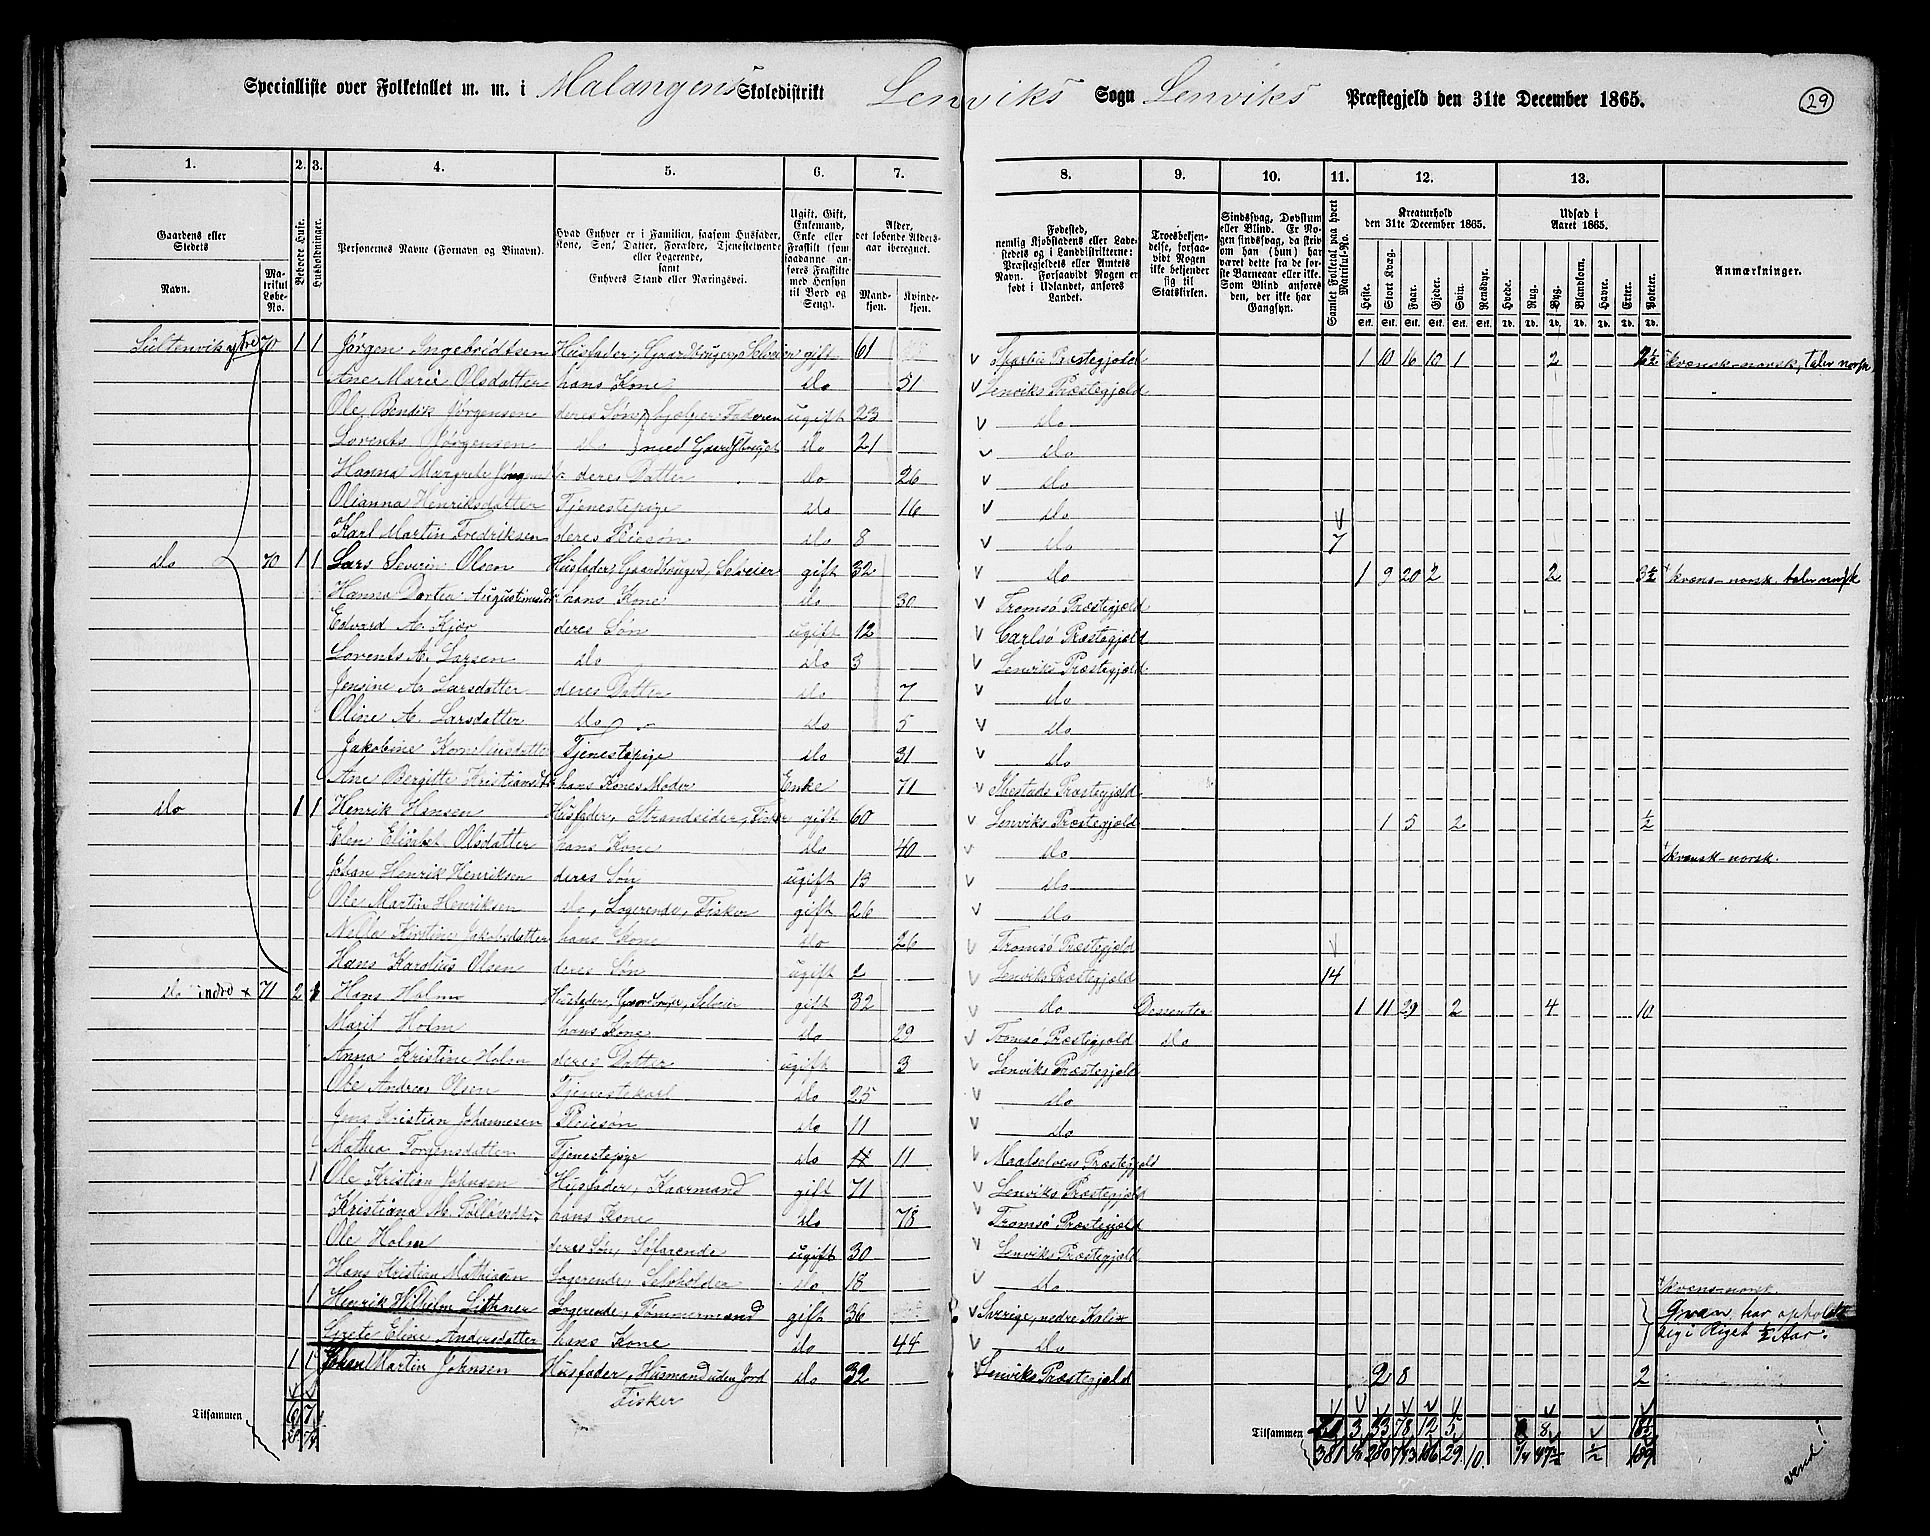 Specialliste over Folketallet m. m. i Malangens Skoledistrikt Lenviks Sogn Lenviks Præstegjeld den 31te December 1865. 29
1. 2. 3. 4. 5. 6. 7. 8. 9. 10. 11. 12. 13.
Gaardens eller Stedets Navn. Matrikul Løbe-No. Beboede Huse. Husholdninger. Personernes Navne (Fornavn og Binavn). Hvad Enhver er i Familien, saasom Husfader, Kone, Søn, Datter, Forældre, Tjenestetyende eller Logerende, samt Enhvers Stand eller Næringsvei. Ugift, Gift, Enkemand, Enke eller Fraskilt (som saadanne anføres Fraskilte med Hensyn til Bord og Seng). Alder, det løbende Aldersaar iberegnet. Mandkjøn. Kvindekjøn.
Fødested, nemlig Kjøbstadens eller Ladestedets og i Landdistrikterne: Præstegjeldets eller Amtets Navn. Forsaavidt Nogen er født i Udlandet, anføres Landet. Troesbekjendelse, forsaavidt Nogen ikke bekjender sig til Statskirken. Sindssvag, Døvstum eller Blind. Er Nogen sindssvag, da hvorvidt han (hun) har været dette fra de første Barneaar eller ikke. Som Blind anføres den, der ikke har Gangsyn. Samlet Folketal paa hvert Matrikul-No. Kreaturhold den 31te December 1865. Heste. Stort Kvæg. Faar. Gjeder. Svin. Rensdyr. Udsæd i Aaret 1865. Hvede. Rug. Byg. Blandkorn. Havre. Erter. Poteter. Anmærkninger.
Sultenvik ytre 70 1 1 Jørgen Ingebridtsen Husfader, Gaardbruger, Selveier gift 61 Sparbu Præstegjeld 1 10 16 10 1 2 2½ kvensk-norsk, taler norsk
Ane Marie Olsdatter hans Kone do 51 Lenviks Præstegjeld
Ole Bendik Jørgensen deres Søn hjelper Faderen ugift 23 do
Lorents Jørgensen do med Gaardsbruget do 21 do
Hanna Margrete deres Datter do 26 do
Olianna Henriksdatter Tjenestepige do 16 do
Karl Martin Fredriksen deres Pleiesøn do 8 do 7
do 70 1 1 Lars Severin Olsen Husfader, Gaardbruger, Selveier gift 32 do 1 9 20 2 2 3½ kvens-norsk taler norsk
Hanna Dortea Augustinusdtr hans Kone do 30 Tromsø Præstegjeld
Edvard A. Kjær deres Søn ugift 12 Carlsø Præstegjeld
Lorents A. Larsen do do 3 Lenviks Præstegjeld
Jensine A. Larsdatter deres Datter do 7 do
Oline A. Larsdatter do do 5 do
Jakobine Korneliusdatter Tjenestepige do 31 do
Ane Bergitte Kristiansdtr hans Kones Moder Enke 71 Ibestads Præstegjeld
do 1 1 Henrik Hansen Husfader, Strandsider, Fisker gift 60 Lenviks Præstegjeld 1 5 2 ½
Elen Elisabet Olsdatter hans Kone do 40 do kvensk-norsk.
Johan Henrik Henriksen deres Søn ugift 13 do
Ole Martin Henriksen do, Logerende, Fisker gift 26 do
Kirstine Jakobsdatter hans Kone do 26 Tromsø Præstegjeld
Hans Karolius Olsen deres Søn ugift 2 Lenviks Præstegjeld 14
do indre 71 2 Hans Holm Husfader, Gaardbruger, Selveier gift 32 do Dessenter 1 11 29 2 4 10
Marit Holm hans Kone do 29 Tromsø Præstegjeld do
Anna Kristine Holm deres Datter ugift 3 Lenviks Præstegjeld
Ole Andreas Olsen Tjenestekarl do 25 do
Jens Kristian Johannesen Pleiesøn do 11 do
Mathea Torgersdatter Tjenestepige do 11 Maalselvens Præstegjeld
1 Ole Kristian Johnsen Husfader, Kaarmand gift 71 Lenviks Præstegjeld
Kristiana M. hans Kone do 78 Tromsø Præstegjeld
Ole Holm deres Søn, Søfarende ugift 30 Lenviks Præstegjeld
Hans Kristian Mathisen Logerende, do 18 do kvens-norsk
1 Henrik Wilhelm Lithner Logerende, Tømmermand gift 36 Sverige, nedre Kalix Qvæn, har opholdt
Grete Eline Andersdatter hans Kone do 44 do sig i Riget ½ Aar.
1 1 Johan Martin Johnsen Husfader, Husmand uden Jord do 32 Lenviks Præstegjeld 2 8 2
Fisker
Tilsammen 6 7 Tilsammen 3 33 78 12 5 8
381 743 106 29 10 189
vend!